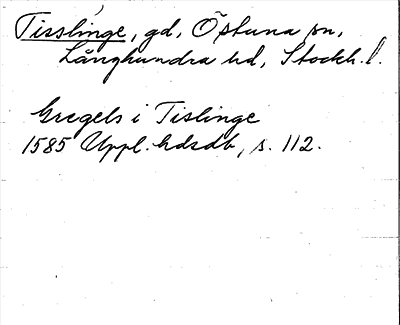 Tisslinge, gd, Östuna sn,
Långhundra hd, Stockh. l.
Gregels i Tislinge
1585 Uppl. hdsdb, s. 112.